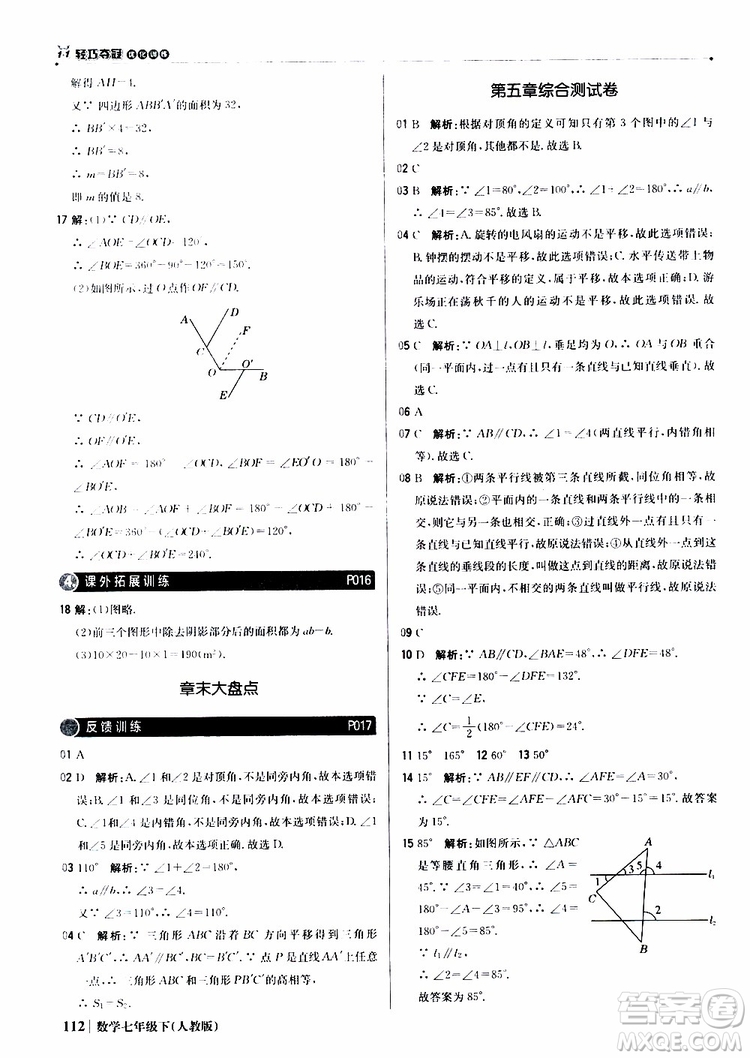 1+1 轻巧夺冠 优化训练
解得 AH=4.
又∵ 四边形 ABB′A′的面积为 32,
∴ BB′×4=32,
∴ BB′=8.
∴ m=BB′=8,
即 m 的值是 8.
17 解:(1)∵ CD∥OE,
∴ ∠AOE=∠OCD=120°.
∴ ∠BOE=360°-90°-120°=150°.
(2)如图所示,过 O 点作 OF∥CD.
A D F C O O′ B E
∵ CD∥O′E,
∴ OF∥O′E.
∴ ∠AOF=180°-∠OCD,∠BOF=∠EO′O=180°-
∠BO′E.
∴ ∠AOB=∠AOF+∠BOF=180°-∠OCD+180°-
∠BO′E=360°-(∠OCD+∠BO′E)=120°.
∴ ∠OCD+∠BO′E=240°.
4 课外拓展训练 P016
18 解:(1)图略.
(2)前三个图形中除去阴影部分后的面积都为 ab-b.
(3)10×20-10×1=190(m²).
章末大盘点
反馈训练 P017
01 A
02 D 解析:A.∠1与∠2是对顶角,不是同旁内角,故本选项错
误;B.∠1与∠2是同位角,不是同旁内角,故本选项错误;
C.∠1与∠2是内错角,不是同旁内角,故本选项错误;D.∠1
与∠2是同旁内角,故本选项正确.故选D.
03 110° 解析:∵ ∠1+∠2=180°,
∴ a∥b.∴ ∠3=∠4.
又∵ ∠3=110°,∴ ∠4=110°.
04 C 解析:∵ 三角形 ABC 沿着 BC 方向平移得到三角形
A′B′C′,∴ AA′∥BC′.∵ 点 P 是直线 AA′上任意
一点,∴ 三角形 ABC 与三角形 PB′C′的高相等,
∴ S₁=S₂.
第五章综合测试卷
01 B 解析:根据对顶角的定义可知只有第 3 个图中的∠1与
∠2是对顶角,其他都不是.故选B.
02 C
03 B 解析:∵ ∠1=80°,∠2=100°,∴ ∠1+∠2=180°.
∴ a∥b.∴ ∠3=∠4=85°.故选B.
04 C 解析:A.旋转的电风扇的运动不是平移,故此选项错误;
B.钟摆的摆动不是平移,故此选项错误;C.水平传送带上物
品的运动,符合平移定义,属于平移,故此选项正确;D.游
乐场正在荡秋千的人的运动不是平移,故此选项错误.故
选C.
05 C 解析:∵ OA⊥l,OB⊥l,垂足均为O,∴ OA与OB重合
(同一平面内,过一点有且只有一条直线与已知直线垂直).故
选C.
06 A
07 C 解析:∵ AB∥CD,∴ ∠1=∠4(两直线平行,内错角相
等).故选C.
08 B 解析:①两条平行线被第三条直线所截,同位角相等,故
原说法错误;②同一平面内,两条不相交的直线是平行线,故
原说法错误;③过直线外一点有且只有一条直线与已知直线
平行,故原说法正确;④从直线外一点作这条直线的垂线段,
这点到直线的垂线段的长度叫做这点到这条直线的距离,故
原说法错误;⑤同一平面内两条直线的位置关系是平行或相
交,故原说法错误.
09 C
10 D 解析:∵ AB∥CD,∠BAE=48°,∴ ∠DFE=48°.
∴ ∠CFE=180°-∠DFE=132°.
∵ ∠C=∠E,
∴ ∠C=½(180°-∠CFE)=24°.故选D.
11 15° 165° 12 60° 13 50°
14 15° 解析:∵ AB∥EF∥DC,∴ ∠AFE=∠A=30°.
∴ ∠CFE=∠AFC-∠AFE=15°.∴ ∠C=15°.故答案
为15°.
15 85° 解析:如图所示,∵ △ABC
是等腰直角三角形,∴ ∠A=
45°.∵ ∠1=∠3=50°,∴ ∠4=
180°-∠A-∠3=180°-45°-
50°=85°.∴ ∠5=∠4=85°.
∵ l₁∥l₂,
∴ ∠2=∠5=85°.
故答案为85°.
A 1 3 5 4 l₁ C 2 l₂ B
112 数学七年级下(人教版)